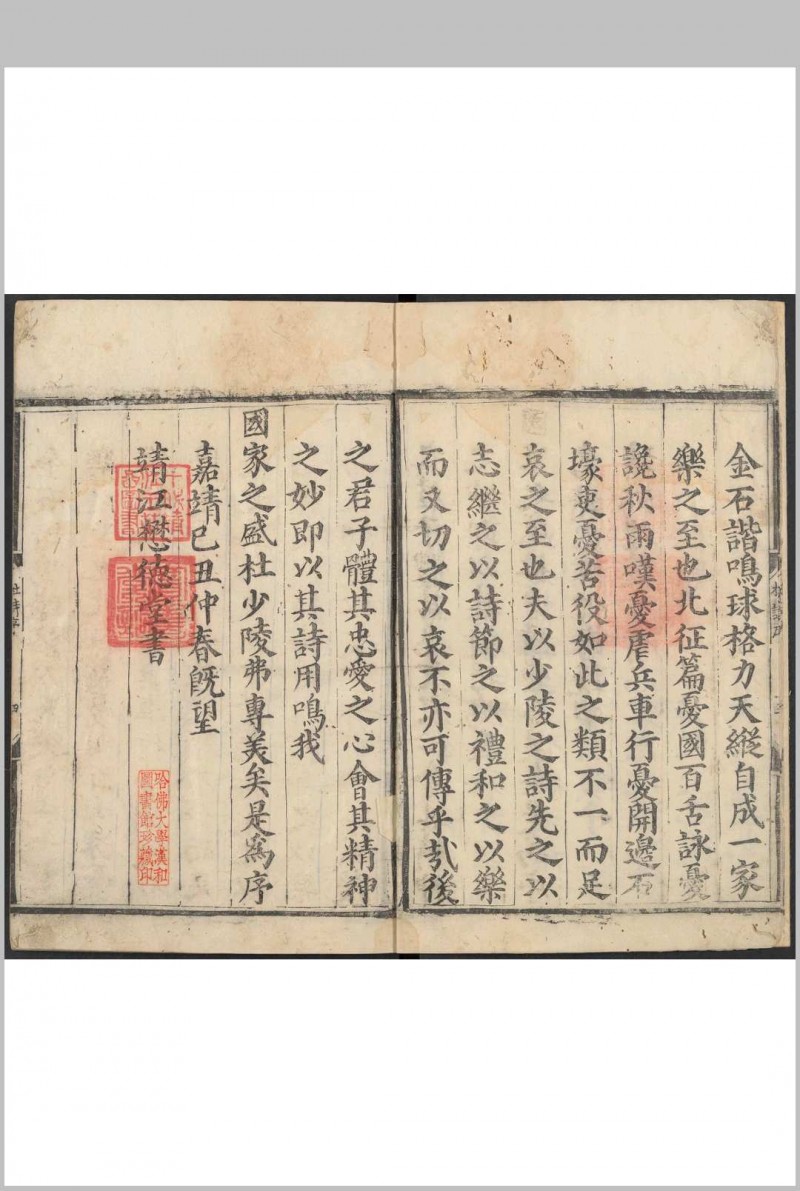 金石諧鳴球格力天縱自成一家
樂之至也北征篇憂國百舌詠憂
讒秋雨嘆憂虐兵車行憂開邊石
壕吏憂苦役如此之類不一而足
哀之至也夫以少陵之詩先之以
志繼之以詩節之以禮和之以樂
而又切之以哀不亦可傳乎哉後
之君子體其忠愛之心會其精神
之妙即以其詩用鳴我
國家之盛杜少陵弗專美矣是爲序
嘉靖己丑仲春既望
靖江懋德堂書
哈佛大學漢和
圖書館珍藏印
杜詩序
四